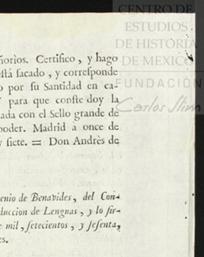 CENTRO DE
ESTUDIOS
DE HISTORIA
DE MEXICO
FUNDACIÓN
Carlos Slim
ñorios. Certifico, y hago
està sacado, y corresponde
o por su Santidad en ca-
para que conste doy la
ada con el Sello grande de
poder. Madrid a once de
y siete. = Don Andrès de
enio de Benavides, del Con-
duccion de Lenguas, y lo fir-
e mil, setecientos, y sesenta,
es.